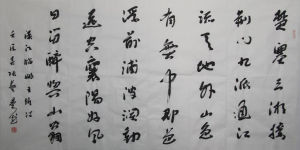 楚塞三湘接
荆門九派通江
流天地外山色
有無中郡邑
浮前浦波瀾動
遠空襄陽好風
日留醉與山翁
漢江臨眺王維詩